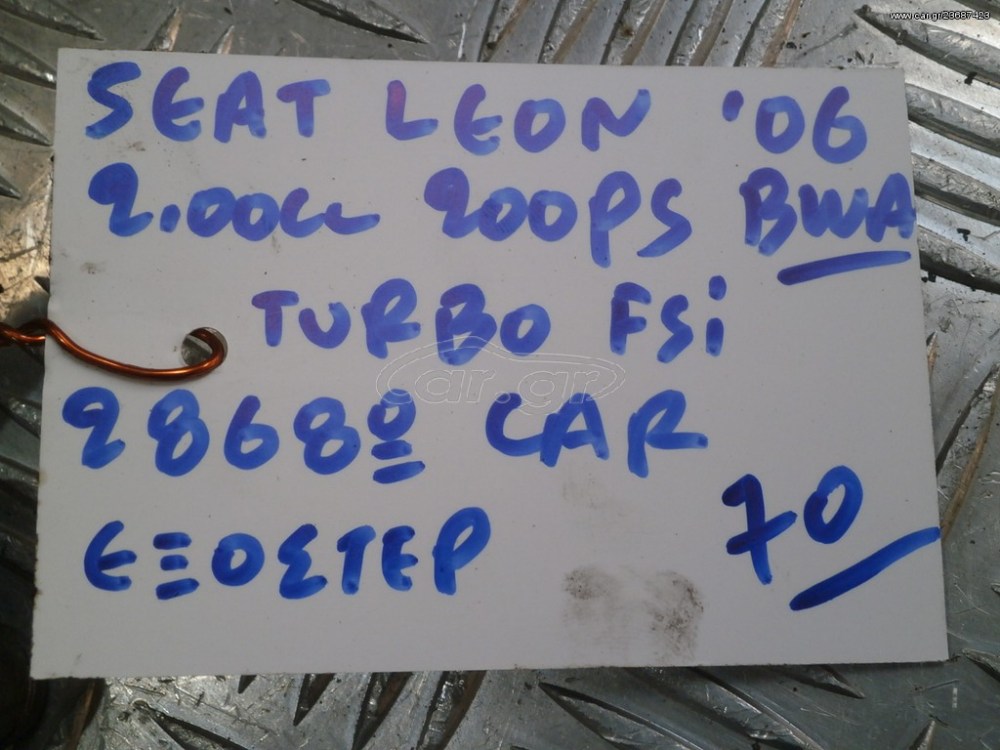 www.car.gr/23687413
SEAT LEON '06
2.00cc 200PS BWA
TURBO FSi
28680 CAR
car.gr
ΕΞΟΣΤΕΡ 70